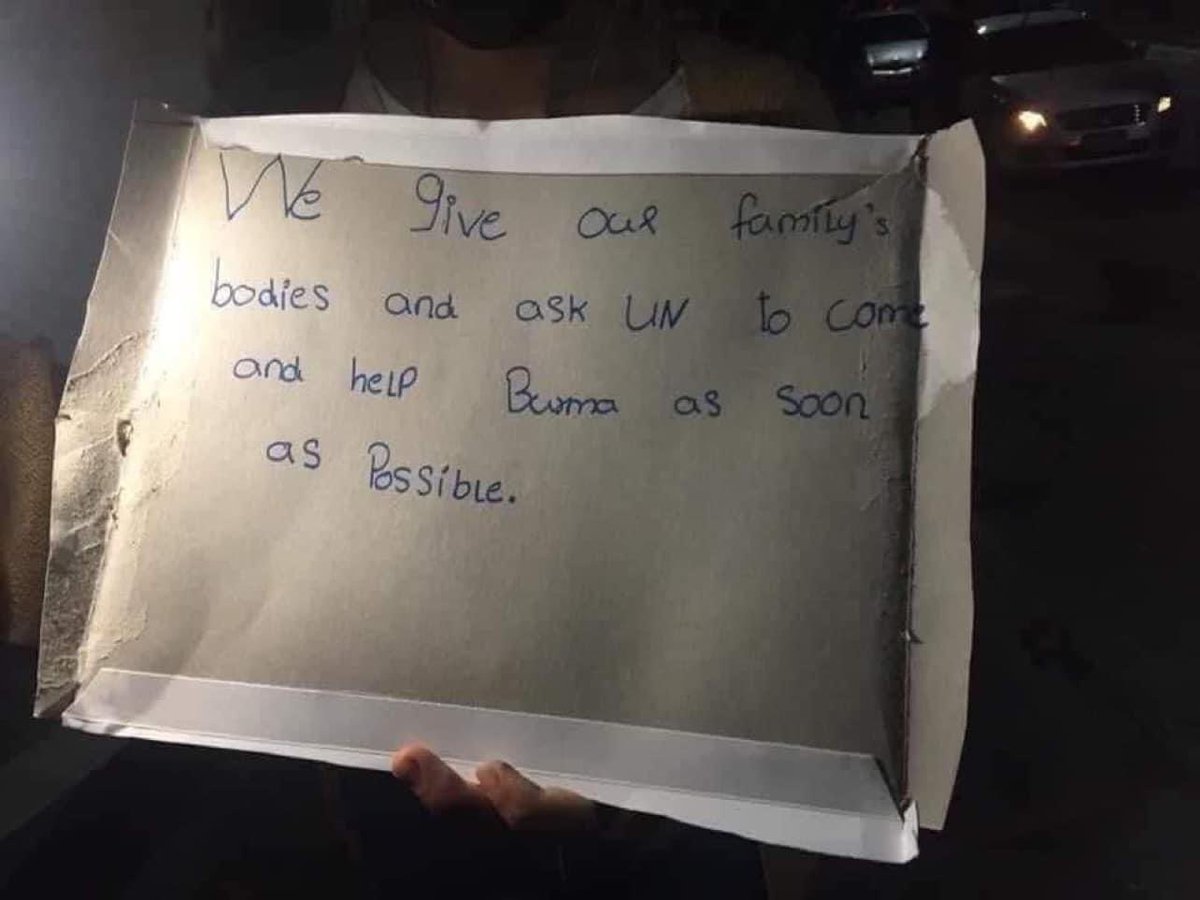 We give our family's
bodies and ask UN to come
and help Burma as soon
as Possible.